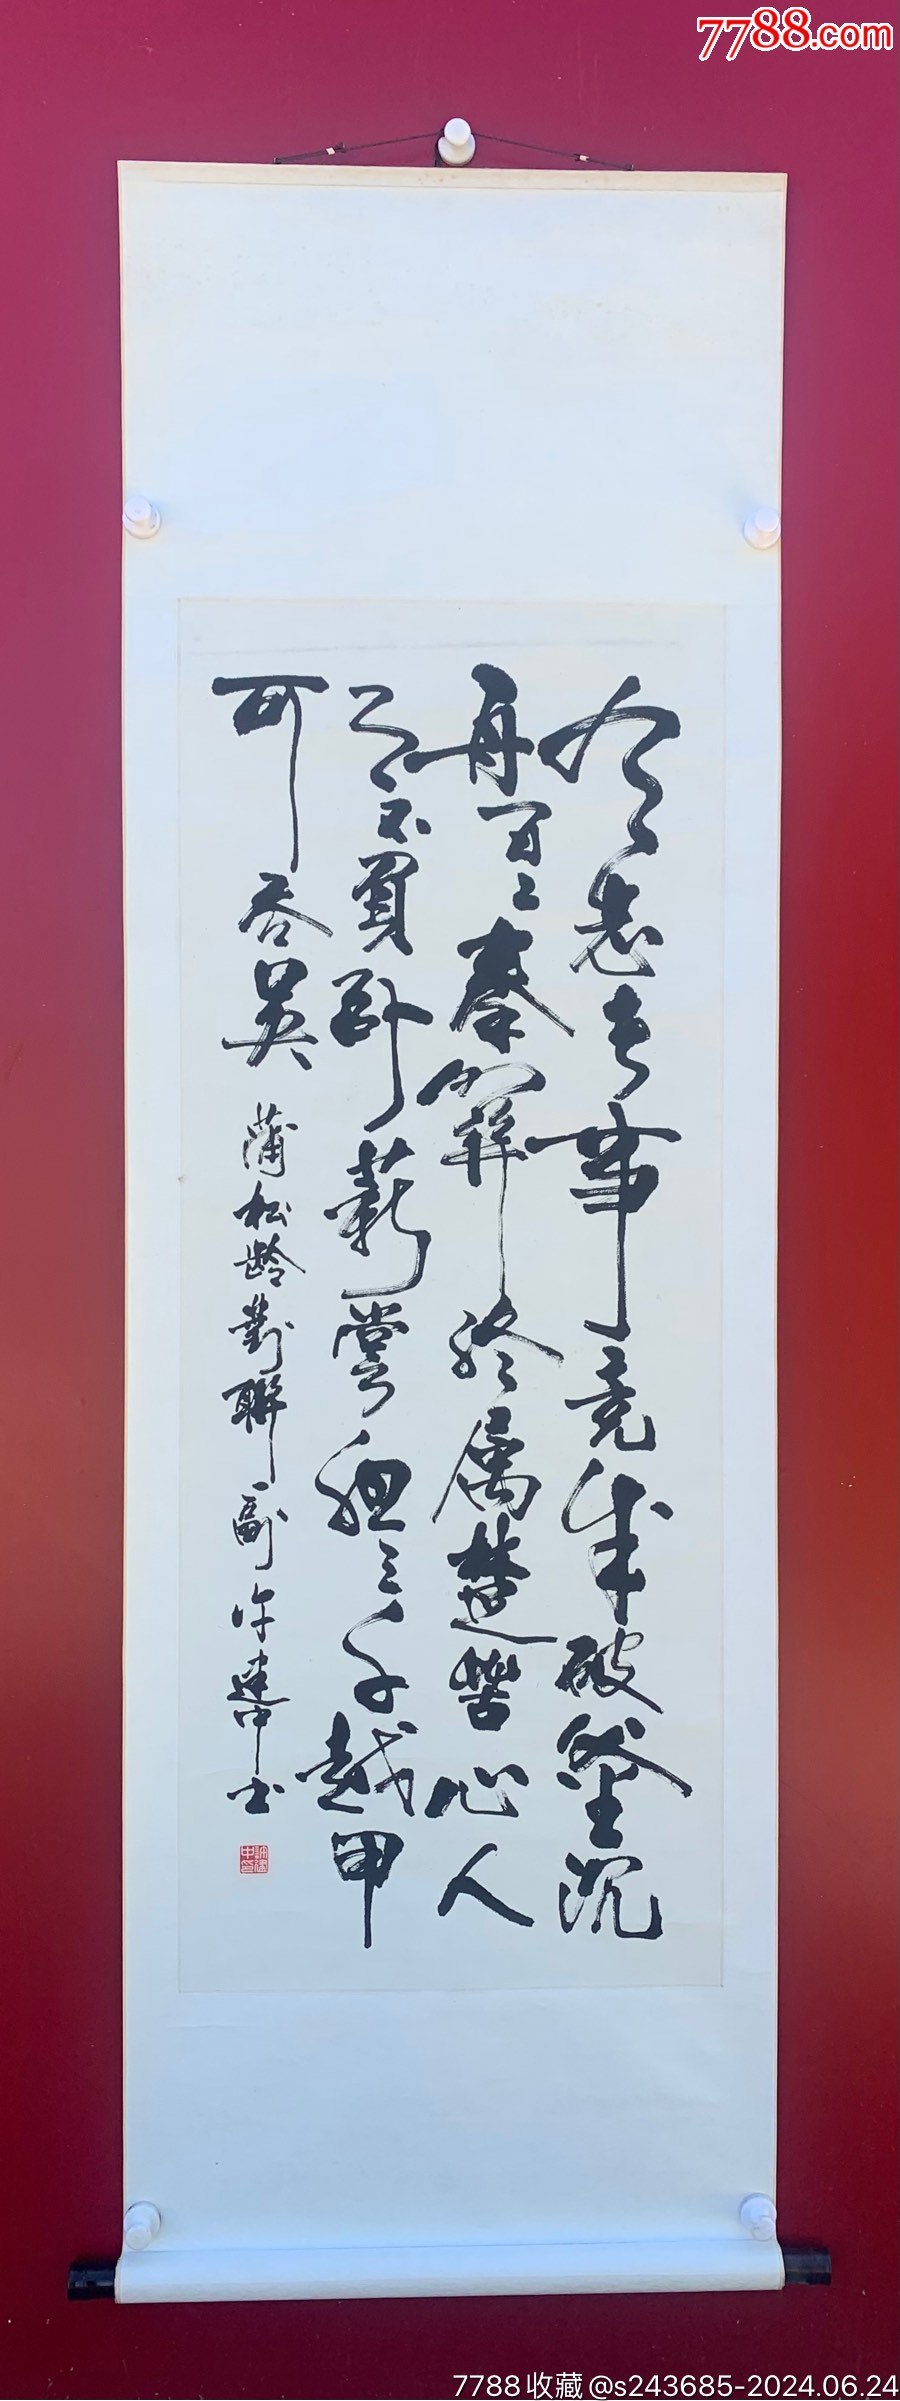 7788.com
有志者事竟成破釜沉
舟百二秦關終属楚苦心人
天不負卧薪嘗膽三千越甲
可吞吴
蒲松龄對聯一副许建中书
許建中印
7788收藏@s243685-2024.06.24